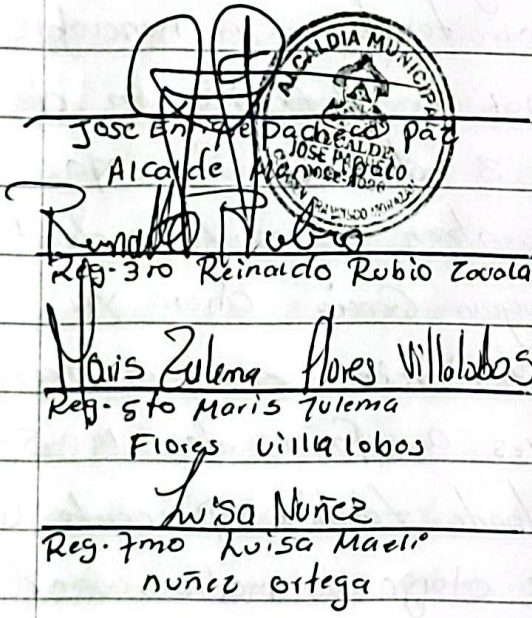 ALCALDIA MUNICIPAL
Jose Enrique Pacheco Paz
Alcalde
ALCALDE
JOSE
FRANCISCO MORAZAN
Reinaldo Rubio
Reg. 3ro Reinaldo Rubio Zavala
Maris Zulema Flores Villalobos
Reg. 5to Maris Zulema
Flores villalobos
Luisa Nuñez
Reg. 7mo Luisa Maeli
nuñez ortega